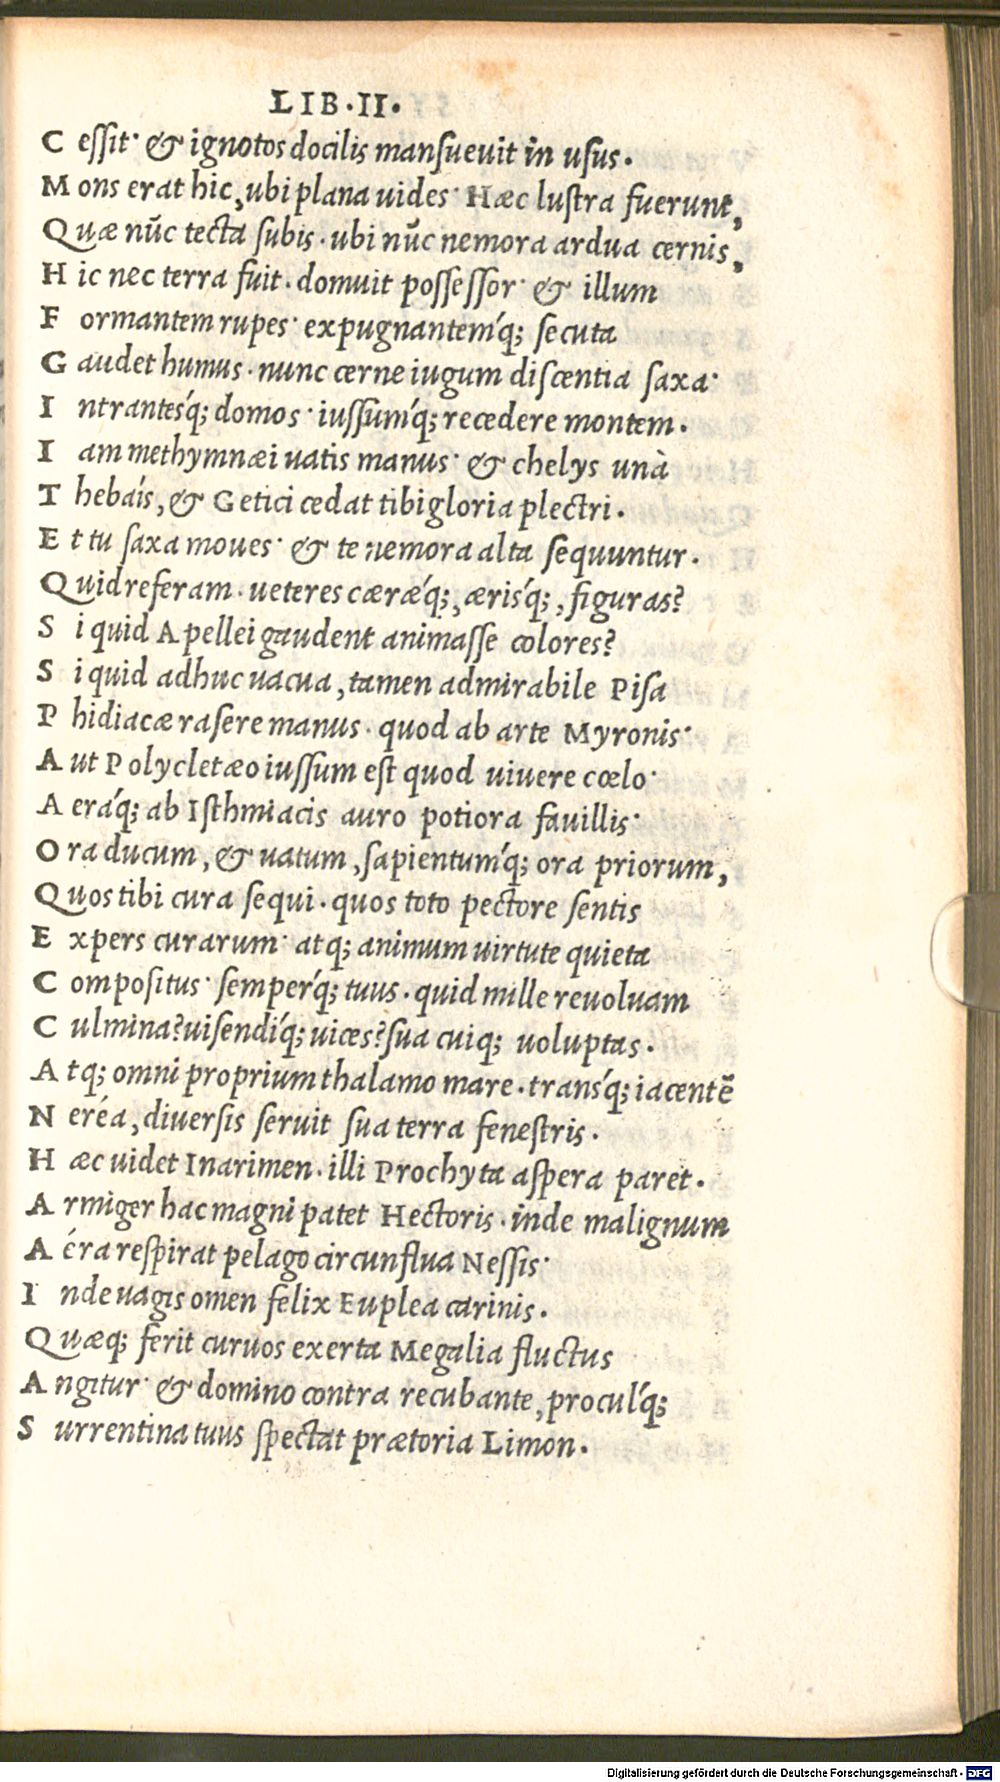 LIB·II·
C eſſit· & ignotos docilis manſueuit in uſus.
M ons erat hic, ubi plana uides· Hæc luſtra fuerunt,
Quæ nūc tecta ſubis. ubi nūc nemora ardua cernis,
H ic nec terra fuit. domuit poſſeſſor· & illum
F ormantem rupes· expugnantemq́; ſecuta
G audet humus. nunc cerne iugum diſcentia ſaxa·
I ntrantesq́; domos· iuſſumq́; recedere montem.
I am methymnæi uatis manus· & chelys unà
T hebaís, & Getici cedat tibi gloria plectri.
E t tu ſaxa moues· & te nemora alta ſequuntur.
Quid referam. ueteres cæræq́;, ærisq́;, figuras?
S i quid Apellei gaudent animaſſe colores?
S i quid adhuc uacua, tamen admirabile Piſa
P hidiacæ raſere manus. quod ab arte Myronis·
A ut Polycletæo iuſſum eſt quod uiuere cœlo·
A eraq́; ab Iſthmiacis auro potiora fauillis·
O ra ducum, & uatum, ſapientumq́; ora priorum,
Quos tibi cura ſequi. quos toto pectore ſentis
E xpers curarum· atq; animum uirtute quieta
C ompoſitus· ſemperq́; tuus. quid mille reuoluam
C ulmina? uiſendiq́; uices? ſua cuiq; uoluptas.
A tq; omni proprium thalamo mare. transq́; iacentē
N eréa, diuerſis ſeruit ſua terra feneſtris.
H æc uidet Inarimen. illi Prochyta aſpera paret.
A rmiger hac magni patet Hectoris. inde malignum
A éra reſpirat pelago circunflua Neſſis·
I nde uagis omen felix Euplea carinis.
Quæq; ferit curuos exerta Megalia fluctus
A ngitur· & domino contra recubante, proculq́;
S urrentina tuus ſpectat prætoria Limon.
Digitalisierung gefördert durch die Deutsche Forschungsgemeinschaft - DFG